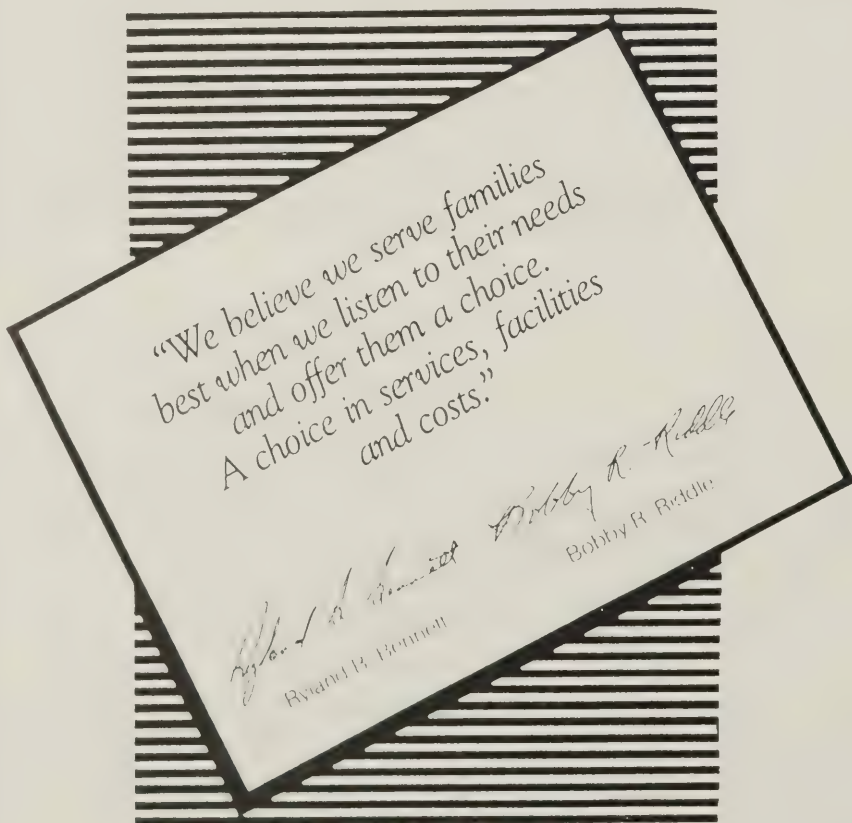 “We believe we serve families
best when we listen to their needs
and offer them a choice.
A choice in services, facilities
and costs.”
Bobby R. Riddle
Bobby R. Riddle
Ryland R. Bennett